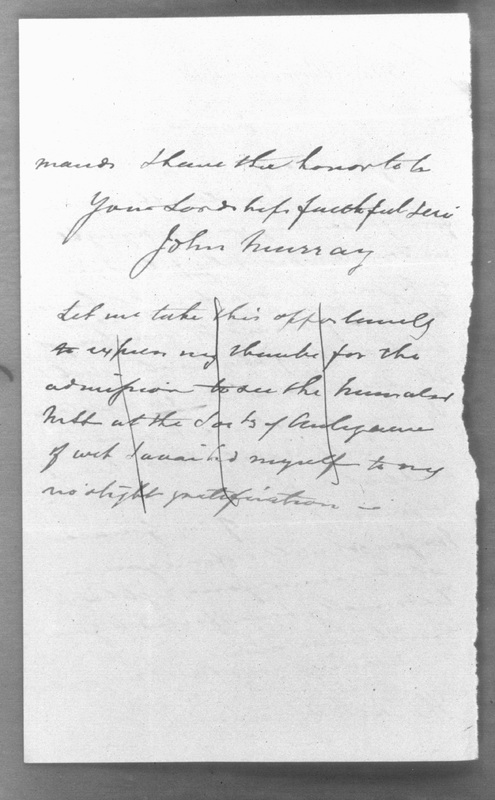 mands I have the honor to be
Your Lordships faithful serv
John Murray
Let me take this opportunity
to express my thanks for the
admission to see the
at the Soc'y of
of wch I availed myself to my
no slight gratification –